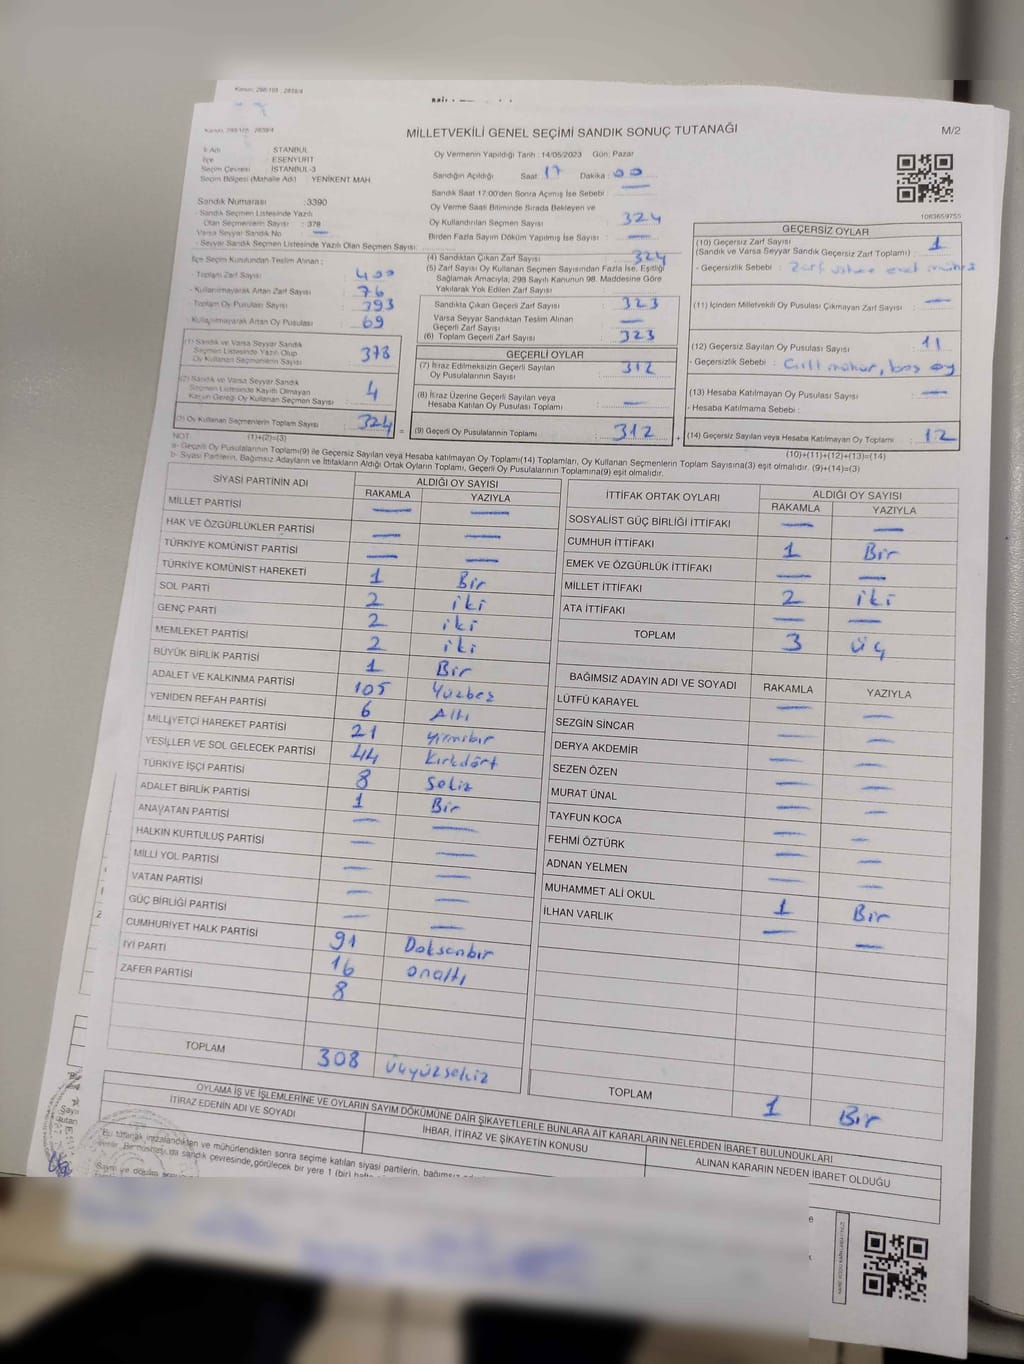 Kanun: 298/105 : 2839/4
Kanun: 298/105 : 2839/4
MİLLETVEKİLİ GENEL SEÇİMİ SANDIK SONUÇ TUTANAĞI
M/2
İl Adı : İSTANBUL
İlçe : ESENYURT
Seçim Çevresi : İSTANBUL-3
Seçim Bölgesi (Mahalle Adı) : YENİKENT MAH.
Oy Vermenin Yapıldığı Tarih : 14/05/2023 Gün: Pazar
Sandığın Açıldığı Saat : 17 Dakika : 00
Sandık Saat 17:00'den Sonra Açılmış İse Sebebi : —
Oy Verme Saati Bitiminde Sırada Bekleyen ve
Oy Kullandırılan Seçmen Sayısı : 324
Birden Fazla Sayım Döküm Yapılmış İse Sayısı : —
1083659755
Sandık Numarası : 3390
- Sandık Seçmen Listesinde Yazılı
Olan Seçmenlerin Sayısı : 378
Varsa Seyyar Sandık No : —
- Seyyar Sandık Seçmen Listesinde Yazılı Olan Seçmen Sayısı:
İlçe Seçim Kurulundan Teslim Alınan ;
- Toplam Zarf Sayısı : 400
- Kullanılmayarak Artan Zarf Sayısı : 76
- Toplam Oy Pusulası Sayısı : 393
- Kullanılmayarak Artan Oy Pusulası : 69
(1) Sandık ve Varsa Seyyar Sandık
Seçmen Listesinde Yazılı Olup
Oy Kullanan Seçmenlerin Sayısı : 378
(2) Sandık ve Varsa Seyyar Sandık
Seçmen Listesinde Kayıtlı Olmayan
Kanun Gereği Oy Kullanan Seçmen Sayısı : 4
(3) Oy Kullanan Seçmenlerin Toplam Sayısı : 324
(4) Sandıktan Çıkan Zarf Sayısı : 324
(5) Zarf Sayısı Oy Kullanan Seçmen Sayısından Fazla İse, Eşitliği
Sağlamak Amacıyla, 298 Sayılı Kanunun 98. Maddesine Göre
Yakılarak Yok Edilen Zarf Sayısı :
Sandıkta Çıkan Geçerli Zarf Sayısı : 323
Varsa Seyyar Sandıktan Teslim Alınan
Geçerli Zarf Sayısı : —
(6) Toplam Geçerli Zarf Sayısı : 323
GEÇERLİ OYLAR
(7) İtiraz Edilmeksizin Geçerli Sayılan
Oy Pusulalarının Sayısı : 312
(8) İtiraz Üzerine Geçerli Sayılan veya
Hesaba Katılan Oy Pusulası Toplamı : —
(9) Geçerli Oy Pusulalarının Toplamı : 312
GEÇERSİZ OYLAR
(10) Geçersiz Zarf Sayısı : 1
(Sandık ve Varsa Seyyar Sandık Geçersiz Zarf Toplamı)
- Geçersizlik Sebebi : Zarf
(11) İçinden Milletvekili Oy Pusulası Çıkmayan Zarf Sayısı : —
(12) Geçersiz Sayılan Oy Pusulası Sayısı : 11
- Geçersizlik Sebebi : Çift mühür, boş oy
(13) Hesaba Katılmayan Oy Pusulası Sayısı : —
- Hesaba Katılmama Sebebi :
(14) Geçersiz Sayılan veya Hesaba Katılmayan Oy Pusulası Toplamı : 12
NOT : (1)+(2)=(3)
(10)+(11)+(12)+(13)=(14)
a- Geçerli Oy Pusulalarının Toplamı(9) ile Geçersiz Sayılan veya Hesaba Katılmayan Oy Pusulası Toplamı(14) Toplamları, Oy Kullanan Seçmenlerin Toplam Sayısına(3) eşit olmalıdır. (9)+(14)=(3)
b- Siyasi Partilerin, Bağımsız Adayların ve İttifakların Aldığı Ortak Oyların Toplamı, Geçerli Oy Pusulalarının Toplamına(9) eşit olmalıdır.
SİYASİ PARTİNİN ADI ALDIĞI OY SAYISI
RAKAMLA YAZIYLA
MİLLET PARTİSİ — —
HAK VE ÖZGÜRLÜKLER PARTİSİ — —
TÜRKİYE KOMÜNİST PARTİSİ — —
TÜRKİYE KOMÜNİST HAREKETİ 1 Bir
SOL PARTİ 2 iki
GENÇ PARTİ 2 iki
MEMLEKET PARTİSİ 2 iki
BÜYÜK BİRLİK PARTİSİ 1 Bir
ADALET VE KALKINMA PARTİSİ 105 Yüzbeş
YENİDEN REFAH PARTİSİ 6 Altı
MİLLİYETÇİ HAREKET PARTİSİ 21 yirmibir
YEŞİLLER VE SOL GELECEK PARTİSİ 44 Kırkdört
TÜRKİYE İŞÇİ PARTİSİ 8 Sekiz
ADALET BİRLİK PARTİSİ 1 Bir
ANAVATAN PARTİSİ — —
HALKIN KURTULUŞ PARTİSİ — —
MİLLİ YOL PARTİSİ — —
VATAN PARTİSİ — —
GÜÇ BİRLİĞİ PARTİSİ — —
CUMHURİYET HALK PARTİSİ 91 Doksanbir
İYİ PARTİ 16 onaltı
ZAFER PARTİSİ 8
TOPLAM 308 üçyüzsekiz
İTTİFAK ORTAK OYLARI ALDIĞI OY SAYISI
RAKAMLA YAZIYLA
SOSYALİST GÜÇ BİRLİĞİ İTTİFAKI — —
CUMHUR İTTİFAKI 1 Bir
EMEK VE ÖZGÜRLÜK İTTİFAKI — —
MİLLET İTTİFAKI 2 iki
ATA İTTİFAKI — —
TOPLAM 3 üç
BAĞIMSIZ ADAYIN ADI VE SOYADI RAKAMLA YAZIYLA
LÜTFÜ KARAYEL — —
SEZGİN SİNCAR — —
DERYA AKDEMİR — —
SEZEN ÖZEN — —
MURAT ÜNAL — —
TAYFUN KOCA — —
FEHMİ ÖZTÜRK — —
ADNAN YELMEN — —
MUHAMMET ALİ OKUL 1 Bir
İLHAN VARLIK — —
TOPLAM 1 Bir
OYLAMA İŞ VE İŞLEMLERİNE VE OYLARIN SAYIM DÖKÜMÜNE DAİR ŞİKAYETLERLE BUNLARA AİT KARARLARIN NELERDEN İBARET BULUNDUKLARI
İTİRAZ EDENİN ADI VE SOYADI
İHBAR, İTİRAZ VE ŞİKAYETİN KONUSU
ALINAN KARARIN NEDEN İBARET OLDUĞU
Bu tutanak imzalandıktan ve mühürlendikten sonra seçime katılan siyasi partilerin, bağımsız
Bir nüshası da sandık çevresinde, görülecek bir yere 1 (bir) hafta